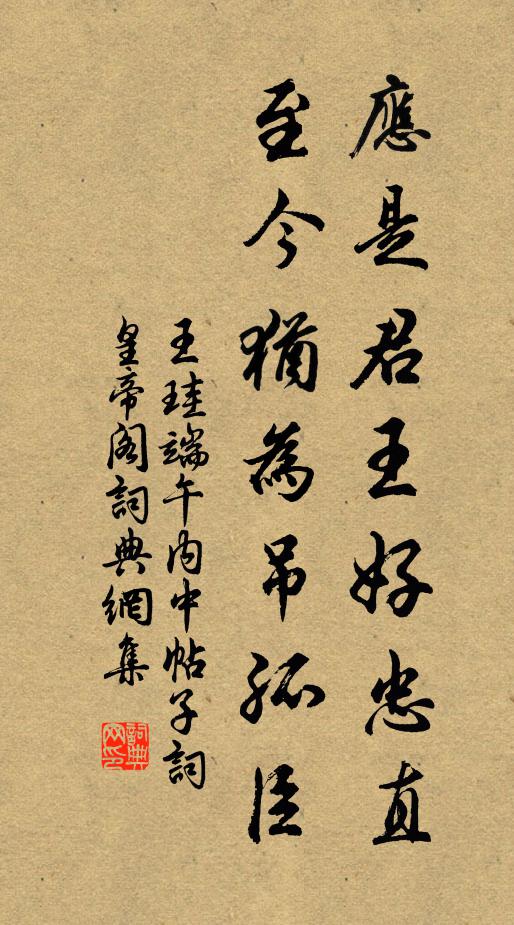 應是君王好忠直
至今猶為吊孤臣
王珪端午內中帖子詞
皇帝閣詞典網集
詞典
网印